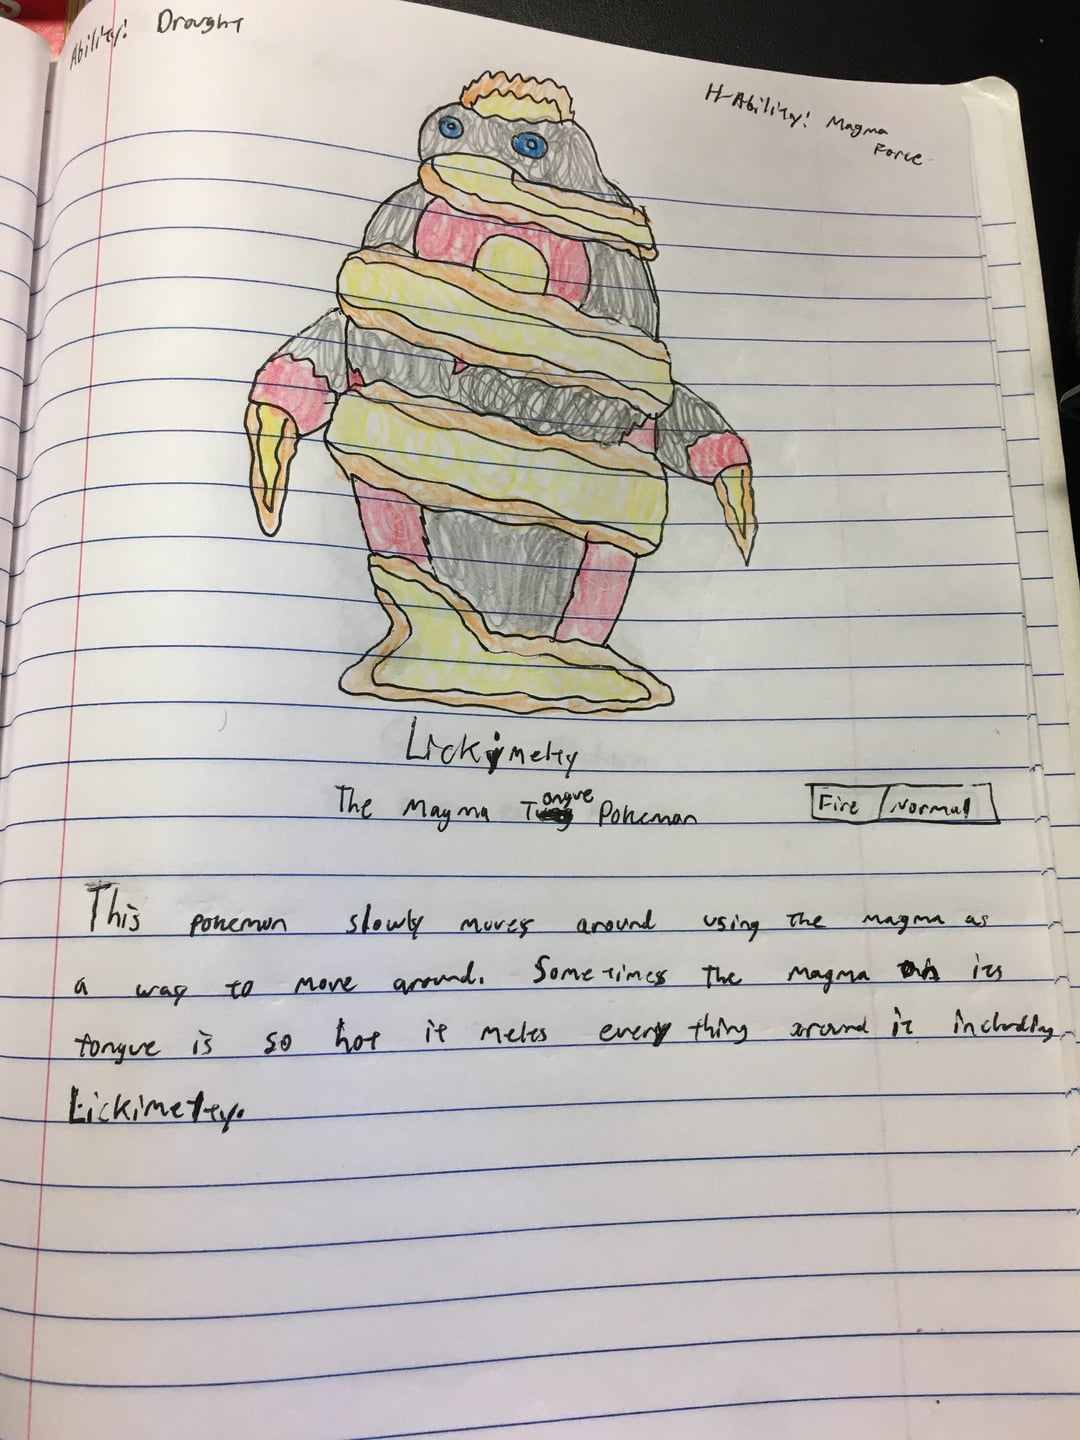 Ability! Drought
H-Ability! Magma
Force
Lickimelty
The Magma Tongue Pokemon
Fire / Normal
This pokemon slowly moves around using the magma as
a way to move around. Sometimes the magma its
tongue is so hot it melts every thing around it including
Lickimelty.